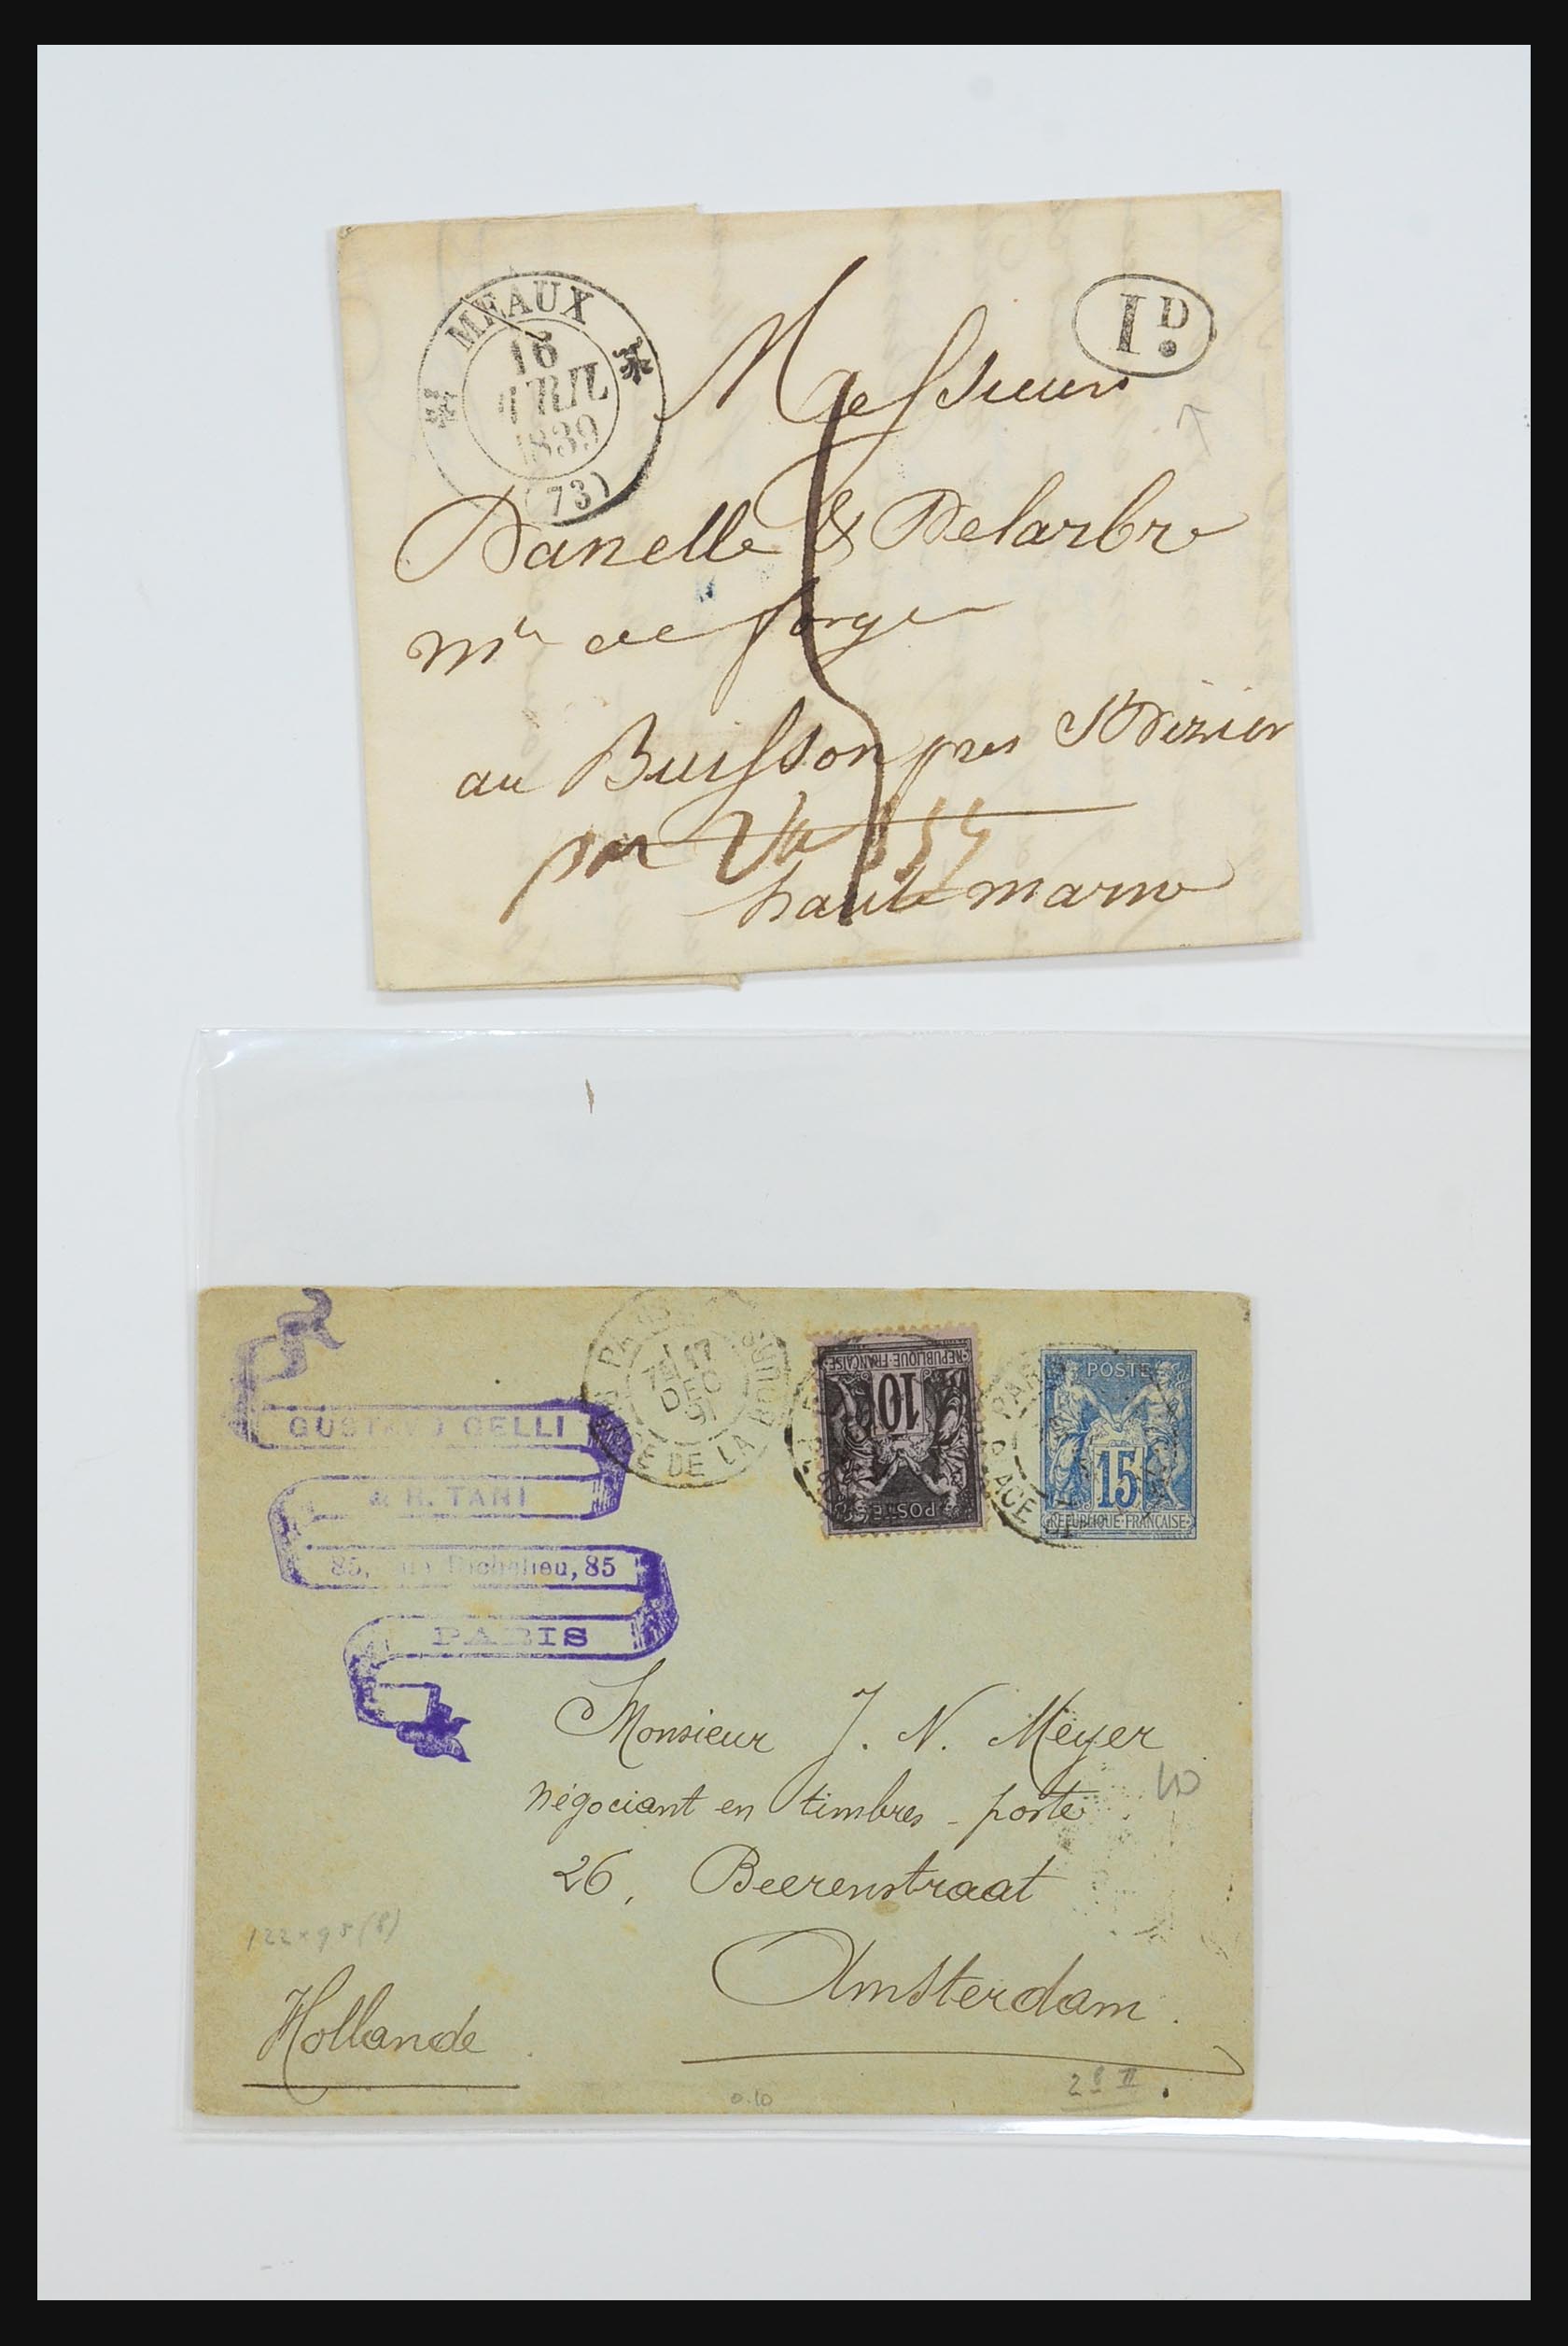 MEAUX
16
AVRIL
1839
(73)
1 D.
Messieurs
Danelle & Delarbre
Mtr de forge
au Buisson pres St Dizier
par
haute marne
GUSTAVO GELLI
& R. TANI
85, rue Richelieu, 85
PARIS
PARIS
17
DEC
91
PLACE DE LA BOURSE
REPUBLIQUE FRANÇAISE
10
POSTES
PARIS
PLACE DE
POSTES
15
REPUBLIQUE FRANÇAISE
Monsieur J. N. Meyer
négociant en timbres-poste
26, Beerenstraat
Amsterdam.
Hollande
122 x 95 (8)
0.10